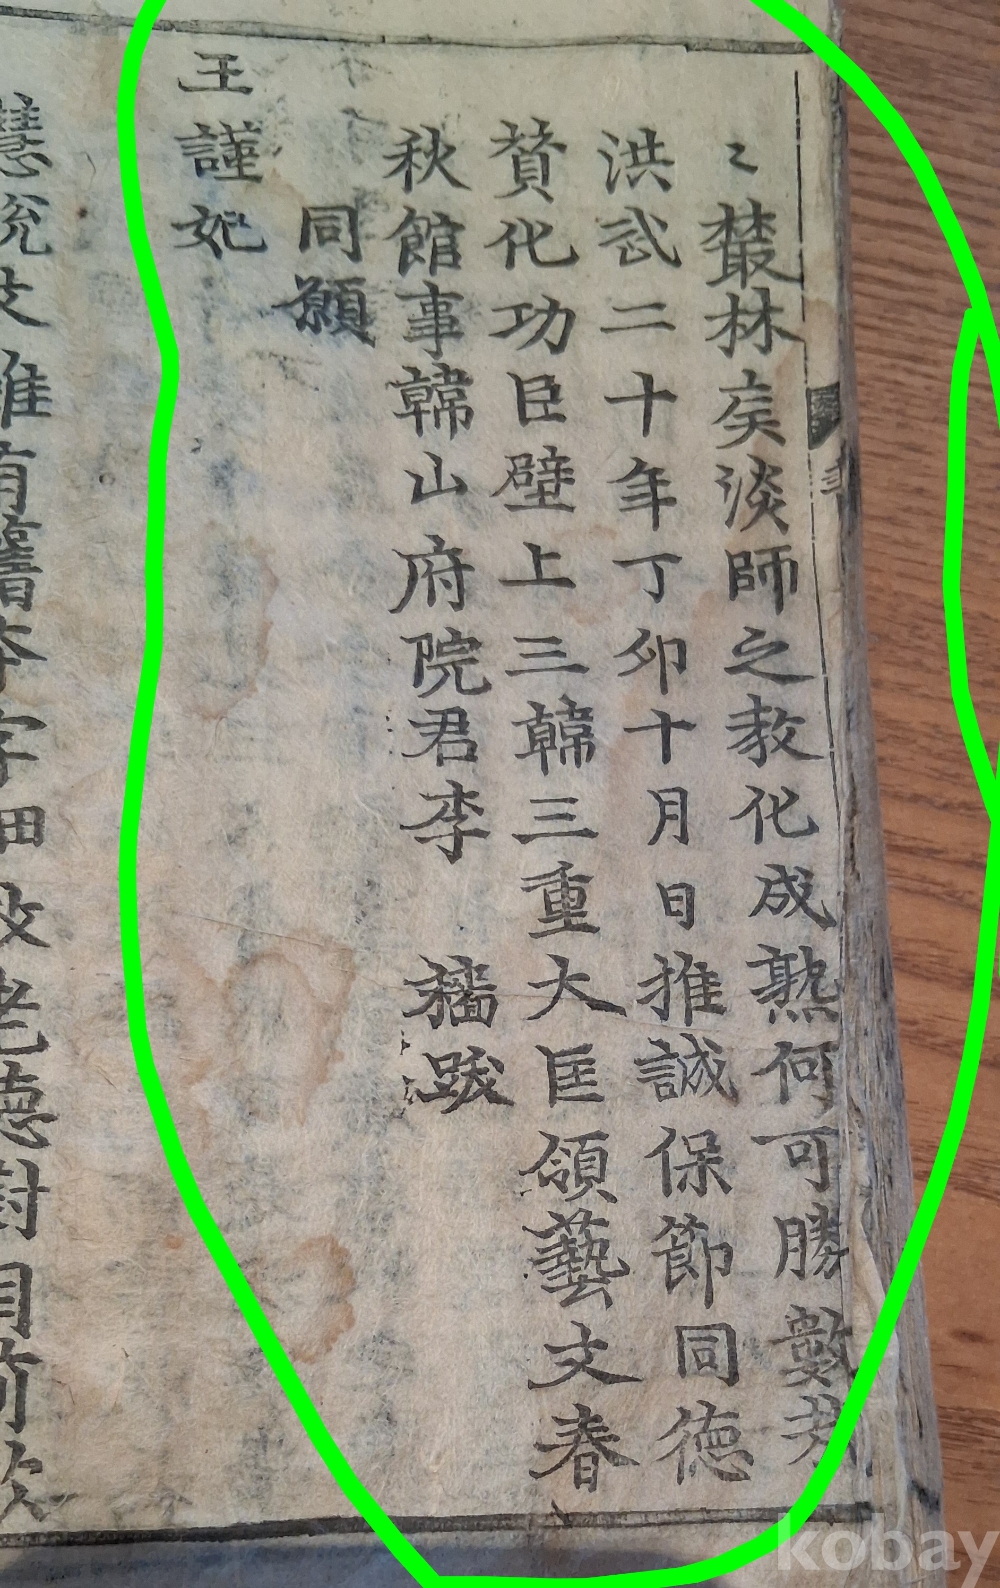 〻叢林矣淡師之教化成熟何可勝數者
洪武二十年丁卯十月日推誠保節同德
賛化功臣壁上三韓三重大匡領藝文春
秋館事韓山府院君李 穡跋
同願
王謹妃
慧
雖有舊本字細
老德對目前
kobay